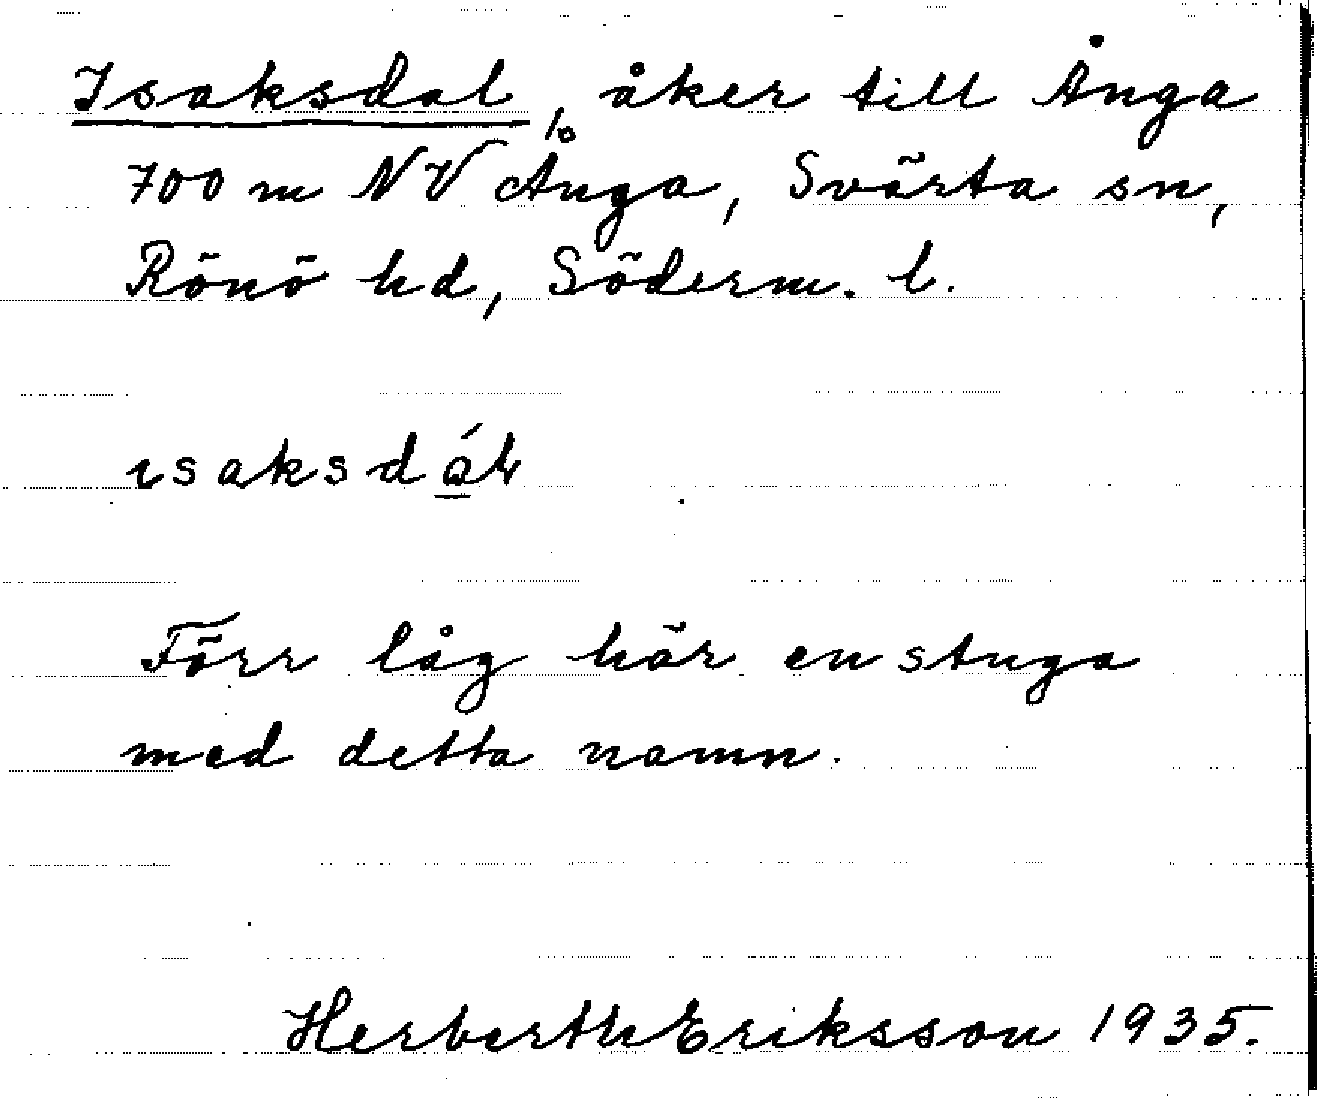 Isaksdal, åker till Ånga
700 m NV Ånga, Svärta sn,
Rönö hd, Söderm. l.
Förr låg här en stuga
med detta namn.
Herberth Eriksson 1935.